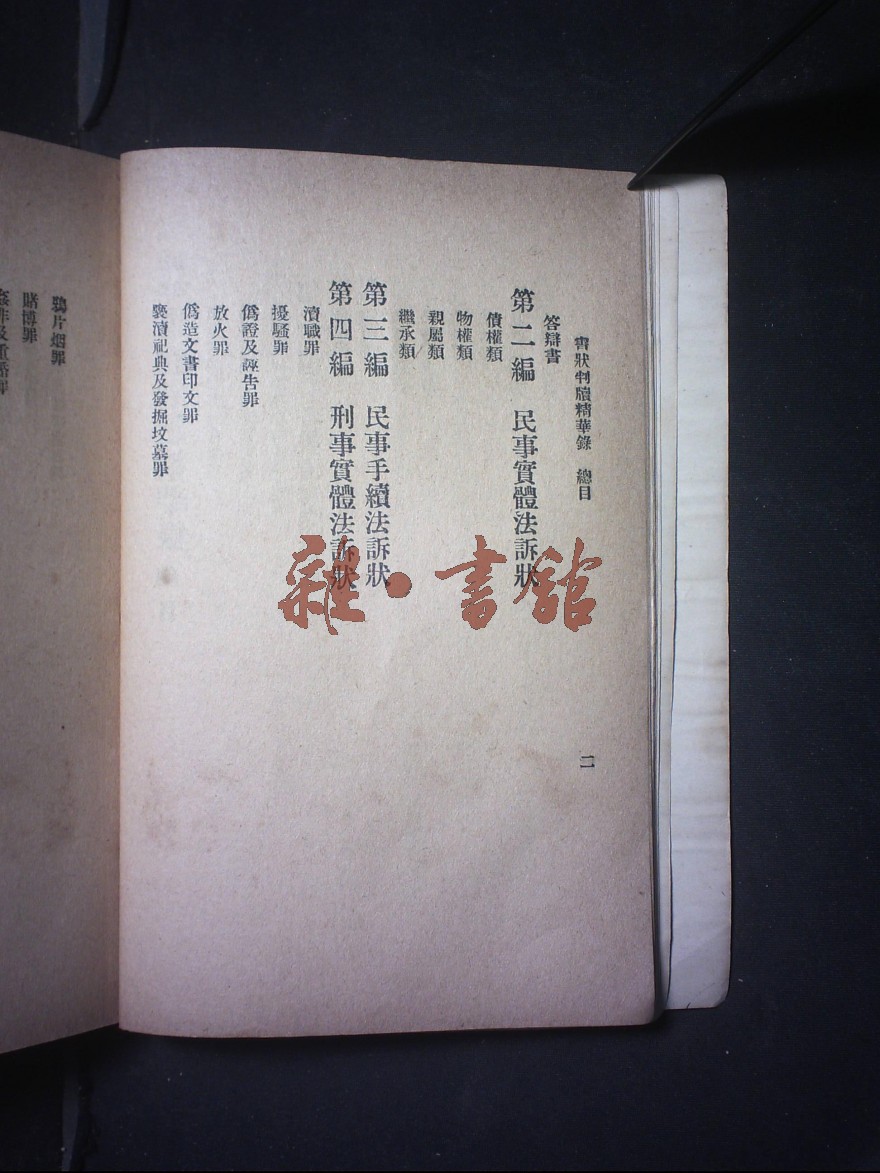 書狀判牘精華錄 總目
二
答辯書
第二編 民事實體法訴狀
債權類
物權類
親屬類
繼承類
第三編 民事手續法訴狀
第四編 刑事實體法訴狀
瀆職罪
擾騷罪
僞證及誣告罪
放火罪
僞造文書印文罪
褻瀆祀典及發掘坟墓罪
鴉片烟罪
賭博罪
姦非及重婚罪
雜·書館